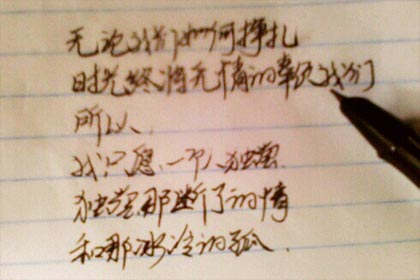 无论我们如何挣扎
时光终将无情的辜负我们
所以
我只愿一个人独噹
独噹那断了的情
和那冰冷的孤.